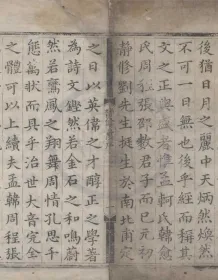 後猶日月之麗中天炳然煥然
不可一日無也後乎經而稱其
文之正與盛者惟孟軻氏韓愈
氏周程張邵數君子而已元初
靜修劉先生挺生於南北甫定
之日以英偉之才醇正之學著
為詩文鏗然若金石之和鳴蔚
然若鸞鳳之翔舞周情孔思千
態萬狀而具乎治世大音完全
之體可以上續夫孟韓周程張